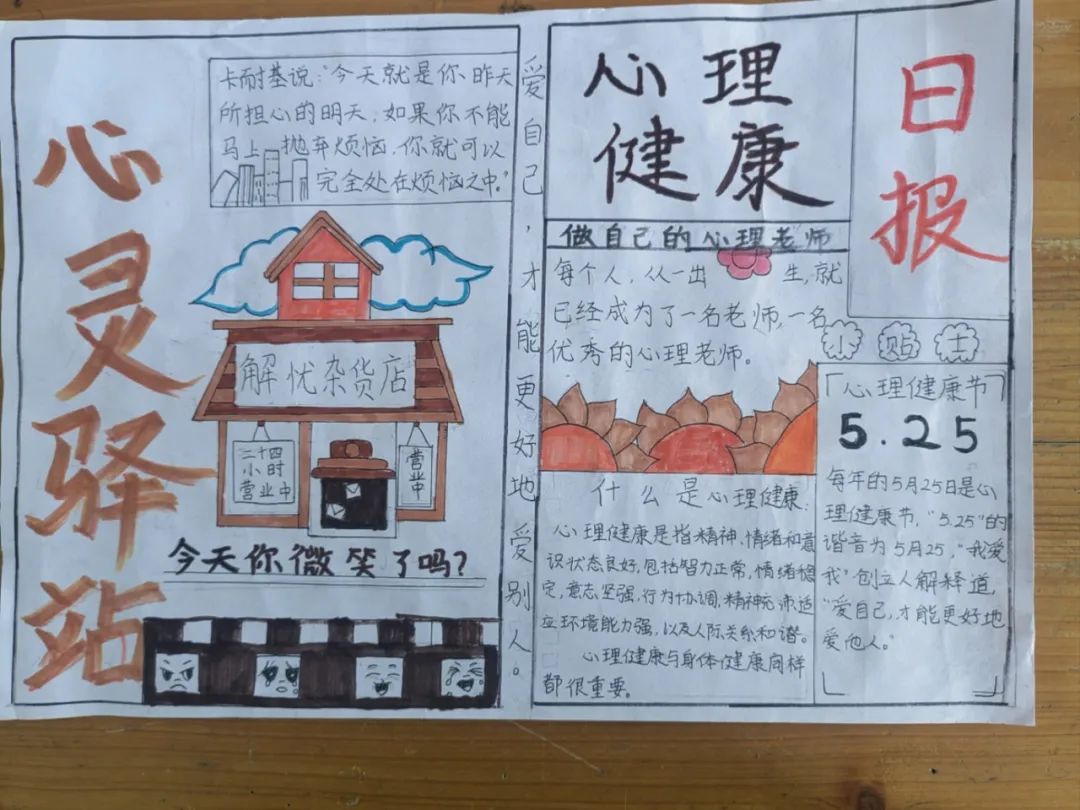 心灵驿站
卡耐基说："今天就是你昨天
所担心的明天；如果你不能
马上抛弃烦恼，你就可以
完全处在烦恼之中。"
解忧杂货店
二十四
小时
营业中
营业中
今天你微笑了吗？
爱自己，才能更好地爱别人。
心理
健康
日报
做自己的心理老师
每个人，从一出生，就
已经成为了一名老师，一名
优秀的心理老师。
什么是心理健康：
心理健康是指精神、情绪和意
识状态良好，包括智力正常，情绪稳
定，意志坚强，行为协调，精神充沛，适
应环境能力强，以及人际关系和谐。
心理健康与身体健康同样
都很重要。
小贴士
「心理健康节」
5.25
每年的5月25日是心
理健康节，"5.25"的
谐音为5月25，"我爱
我"创立人解释道，
"爱自己，才能更好地
爱他人。"